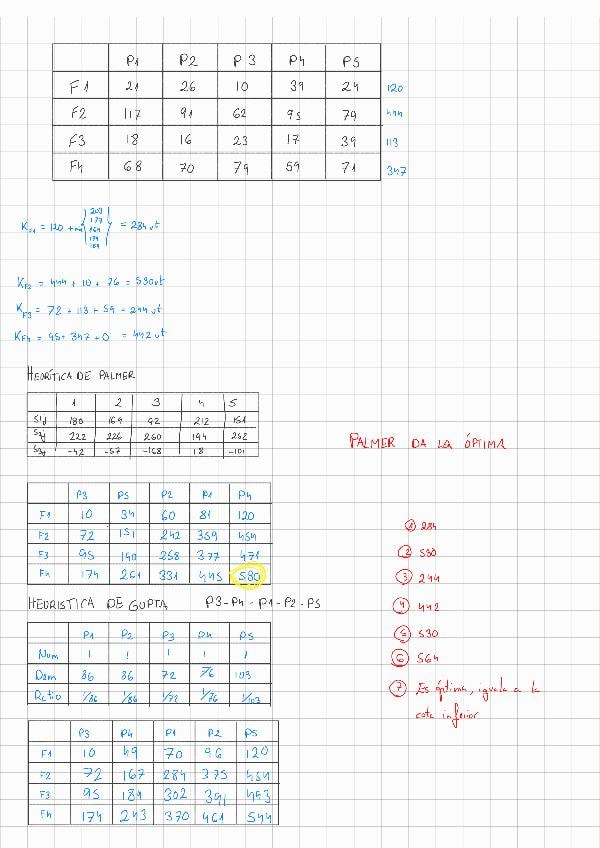 P1 P2 P3 P4 P5
F1 21 26 10 39 24 120
F2 117 91 62 95 79 444
F3 18 16 23 17 39 113
F4 68 70 79 59 71 347
= 120 + = 284 ut
KF2 = 444 + 10 + 76 = 530ut
KF3 = 72 + 113 + 59 = 244 ut
KF4 = 95 + 347 + 0 = 442 ut
HEURÍTICA DE PALMER
1 2 3 4 5
S1j 180 169 92 212 151
S2j 222 226 260 194 252
S3j -42 -57 -168 18 -101
PALMER DA LA ÓPTIMA
P3 P5 P2 P1 P4
F1 10 34 60 81 120
F2 72 151 242 359 454
F3 95 190 258 377 471
F4 174 261 331 445 530
① 284
② 530
③ 244
④ 442
⑤ 530
⑥ 564
⑦ Es óptima, iguala a la
cota inferior
HEURISTICA DE GUPTA P3-P4-P1-P2-P5
P1 P2 P3 P4 P5
Num 1 1 1 1 1
86 86 72 76 103
Ratio 1/86 1/86 1/72 1/76 1/103
P3 P4 P1 P2 P5
F1 10 49 70 96 120
F2 72 167 284 375 454
F3 95 184 302 391 493
F4 174 243 370 461 544